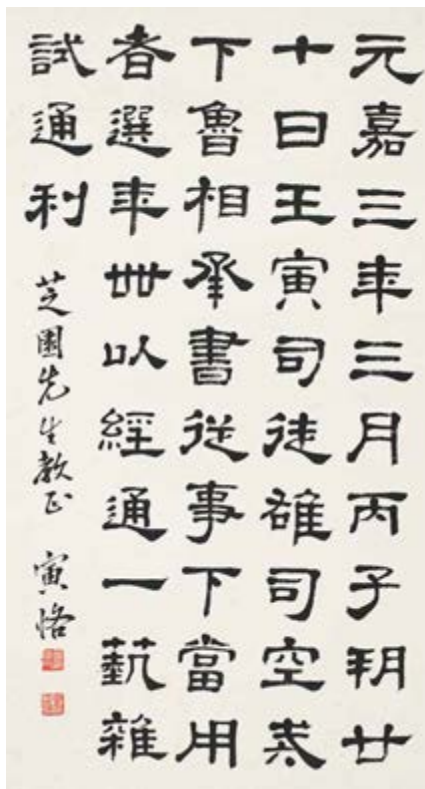 元嘉三年三月丙子朔廿
七日壬寅司徒雄司空戒
下魯相承書從事下當用
者選年卌以經通一藝雜
試通利
芝園先生教正 寅恪